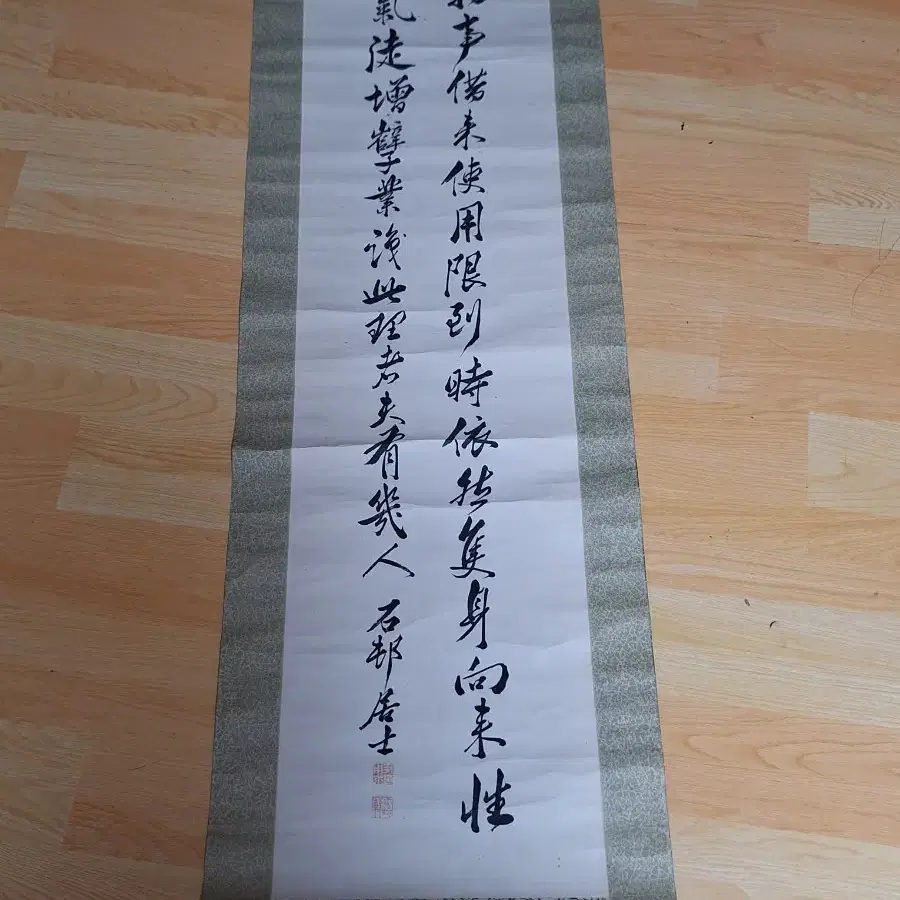 事借来使用限到時依然隻身向来性
氣徒增孽業識此理者夫有幾人 石邨居士